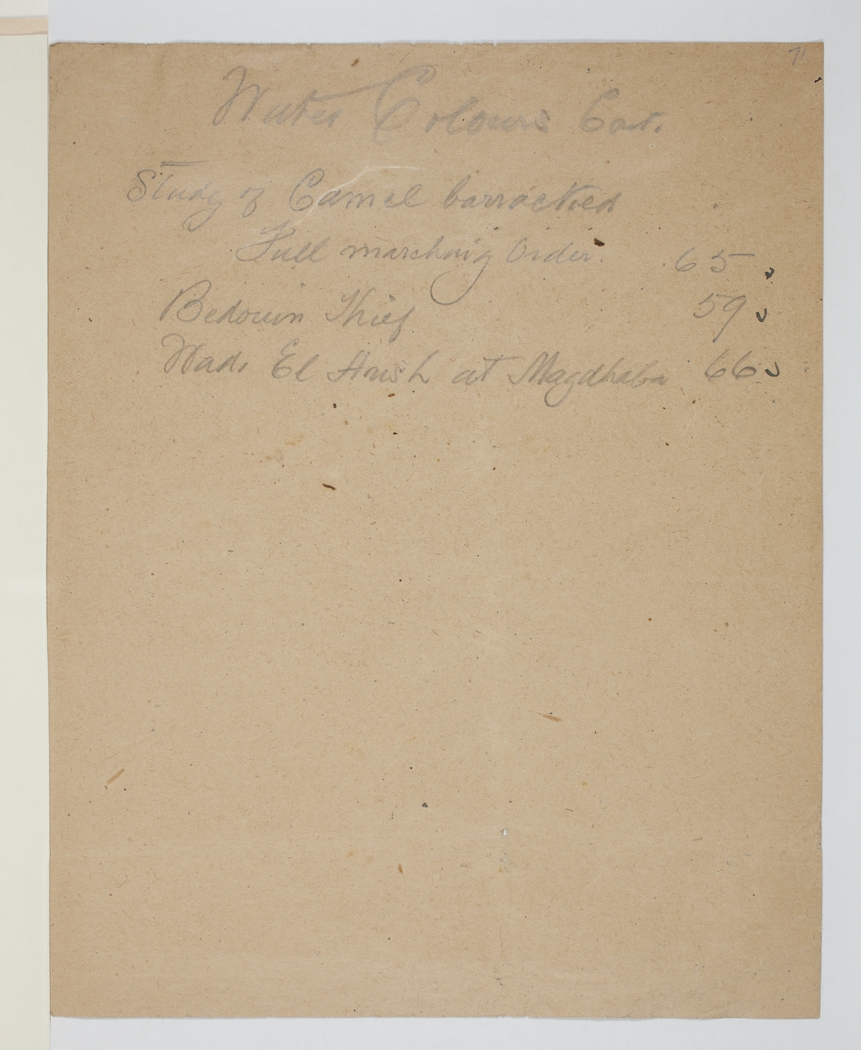 71
Water Colours Cont.
Study of Camel barracked
Full marching Order. 65
Bedouin Thief 59
Wadi El Arish at Magdhaba 66